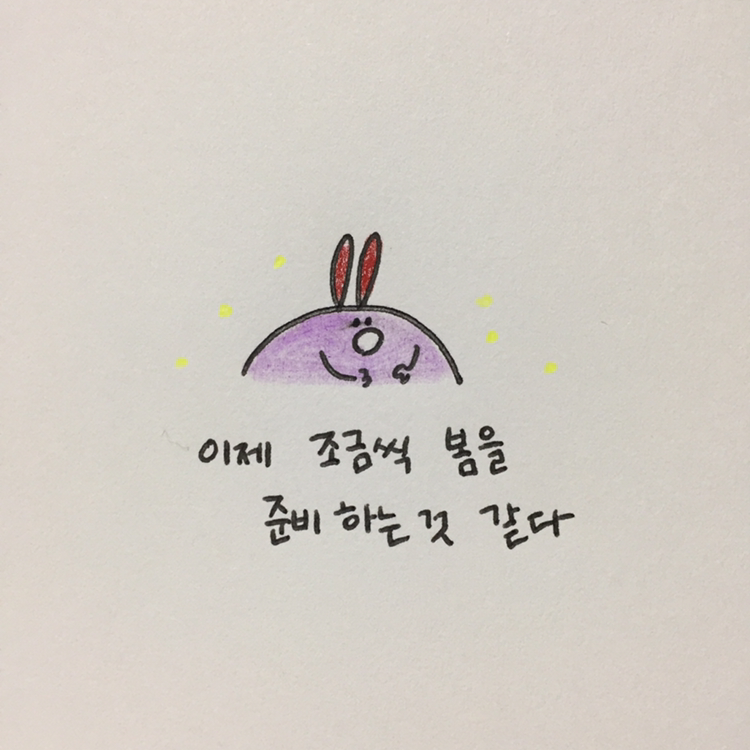 이제 조금씩 봄을
준비 하는것 같다